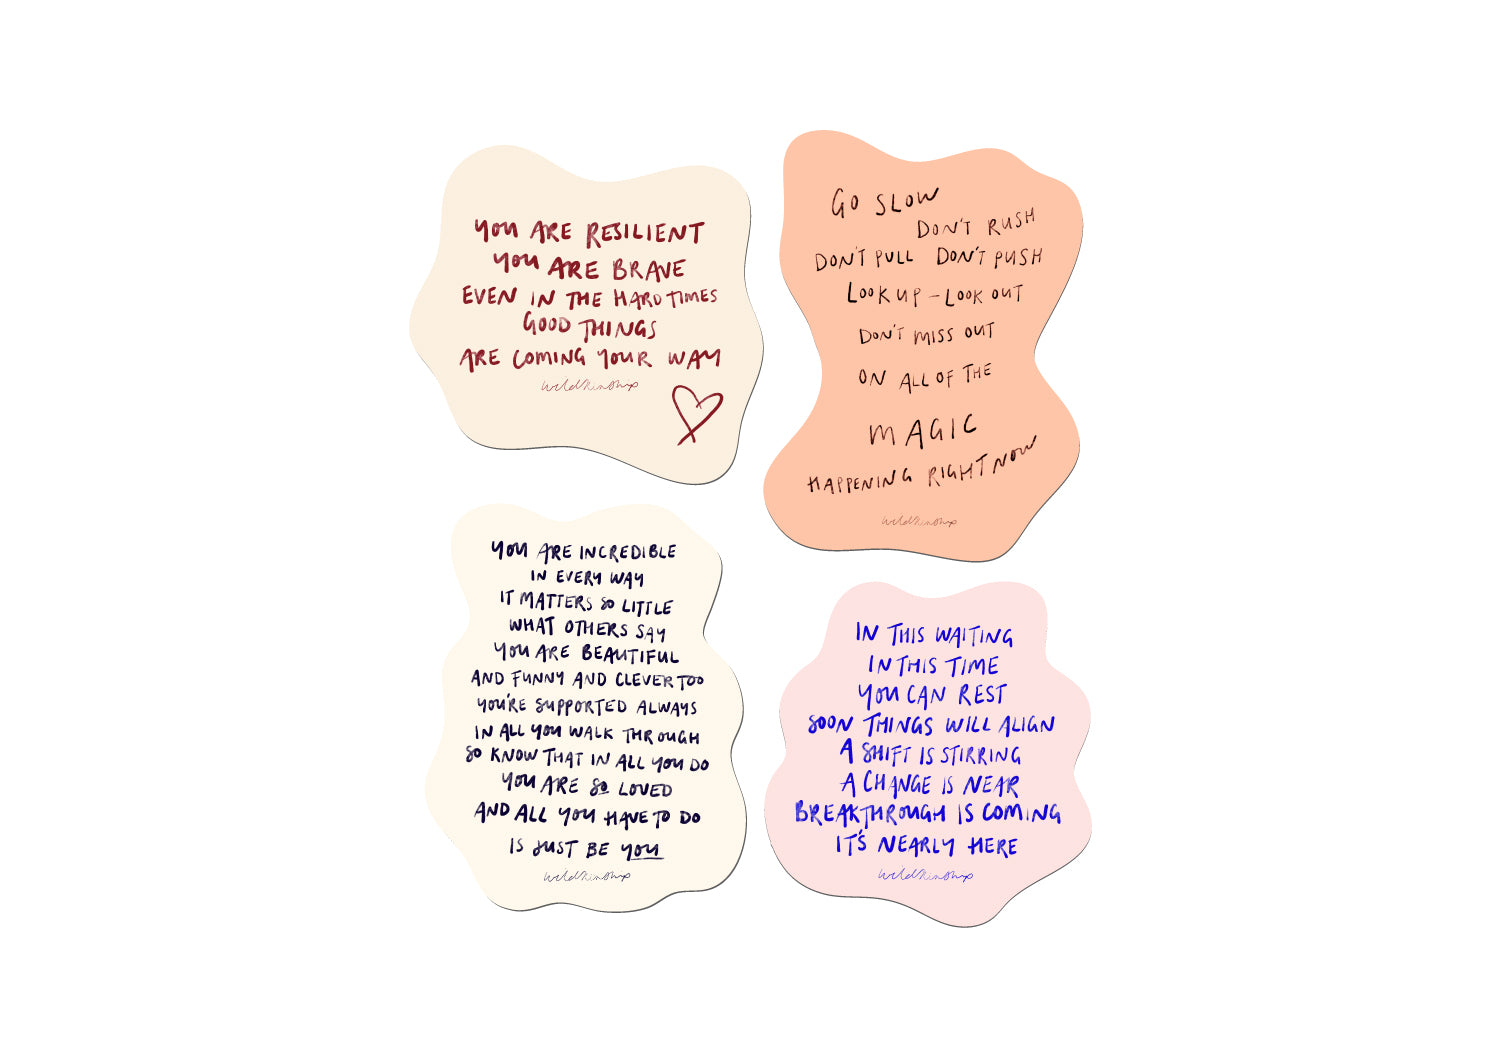 YOU ARE RESILIENT
YOU ARE BRAVE
EVEN IN THE HARD TIMES
GOOD THINGS
ARE COMING YOUR WAY
wildkinship
GO SLOW
DON'T RUSH
DON'T PULL DON'T PUSH
LOOK UP - LOOK OUT
DON'T MISS OUT
ON ALL OF THE
MAGIC
HAPPENING RIGHT NOW
wildkinship
YOU ARE INCREDIBLE
IN EVERY WAY
IT MATTERS SO LITTLE
WHAT OTHERS SAY
YOU ARE BEAUTIFUL
AND FUNNY AND CLEVER TOO
YOU'RE SUPPORTED ALWAYS
IN ALL YOU WALK THROUGH
SO KNOW THAT IN ALL YOU DO
YOU ARE SO LOVED
AND ALL YOU HAVE TO DO
IS JUST BE YOU
wildkinship
IN THIS WAITING
IN THIS TIME
YOU CAN REST
SOON THINGS WILL ALIGN
A SHIFT IS STIRRING
A CHANGE IS NEAR
BREAKTHROUGH IS COMING
IT'S NEARLY HERE
wildkinship